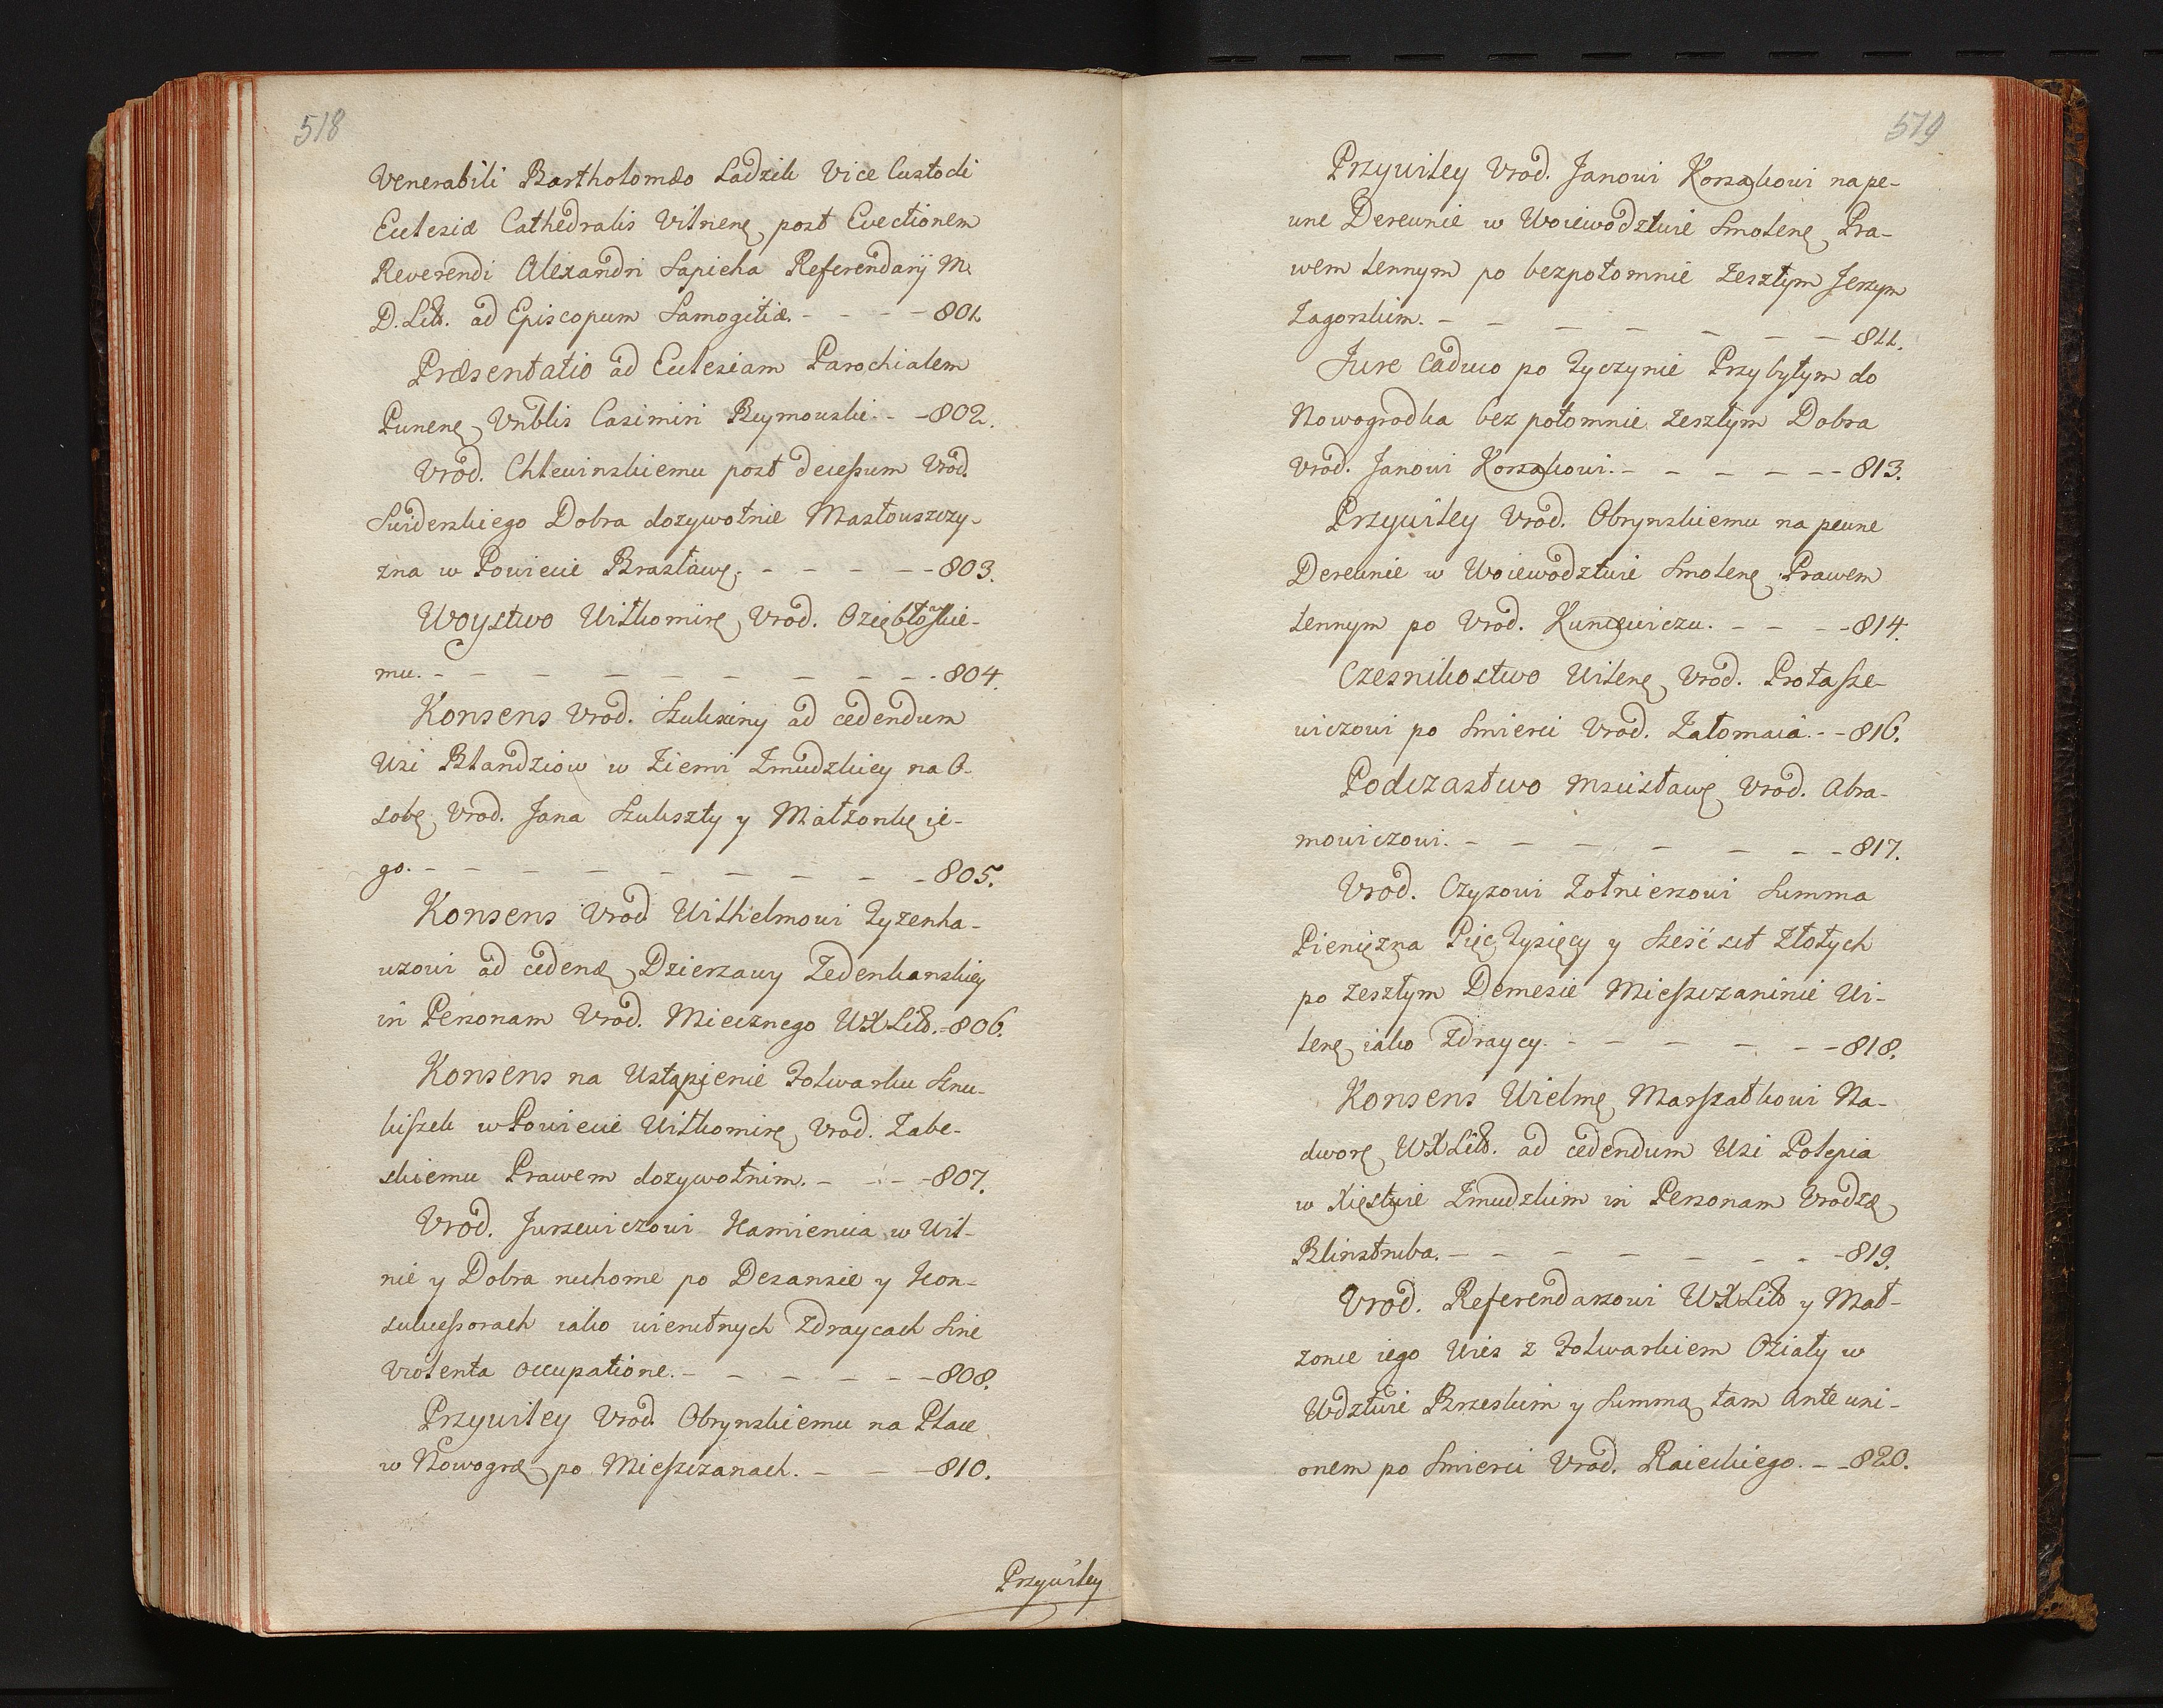 518
Venerabili Bartholomæo Ładzik Vice Custodi
Ecclesiæ Cathedralis Vilnenę post Evectionem
Reverendi Alexandri Sapieha Referendarij M.
D. Litt. ad Episcopum Samogitiæ. - - - - 801.
Præsentatio ad Ecclesiam Parochialem
Punenę Vnblis Casimiri Reymowski. - - 802.
Vrod. Chlewinskiemu post decessum Vrod.
Swiderskiego Dobra dozywotnie Masłouszczy-
zna w Powiecie Brasławę. - - - - - 803.
Woystwo Wiłkomirę Vrod. Oziębłowskie-
mu. - - - - - - - - - - 804.
Konsens Vrod. Szukściny ad cedendum
Wsi Blandziow w Ziemi Zmudzkiey na O-
sobę Vrod. Jana Szukszty y Małzonkę ie-
go. - - - - - - - - - 805.
Konsens Vrod. Wilhelmowi Tyzenha-
uzowi ad cedenď Dzierzawy Zedenkanskiey
in Personam Vrod. Miecznego WXLitt. - 806.
Konsens na Ustąpienie Folwarku Sznu-
kiszek w Powiecie Wiłkomirę Vrod. Zabe-
skiemu Prawem dozywotnim. - - - - 807.
Vrod. Jurzewiczowi Kamienica w Wil-
nie y Dobra ruchome po Dezansie y Kon-
sukcessorach iako wierutnych Zdraycach Sine
Violenta occupatione. - - - - - - 808.
Przywiley Vrod. Obrynskiemu na Place
w Nowogrď po Mieszczanach. - - - 810.
Przywiley
519
Przywiley Vrod. Janowi Korsakowi na pe-
wne Derewnie w Woiewodztwie Smolenę Pra-
wem Lennym po bezpotomnie Zeszłym Jerzym
Zagorskim. - - - - - - - 811.
Jure Caduco po Tyczynie Przybyłym do
Nowogrodka bez potomnie zeszłym Dobra
Vrod. Janowi Korsakowi. - - - - - - 813.
Przywiley Vrod. Obrynskiemu na pewne
Derewnie w Woiewodztwie Smolenę Prawem
Lennym po Vrod. Kuncewiczu. - - - - 814.
Czesnikostwo Wilenę Vrod. Protasze-
wiczowi po Smierci Vrod. Załomaia. - - 816.
Podczastwo Mscisławę Vrod. Abra-
mowiczowi. - - - - - - - 817.
Vrod. Czyzowi Zołnierzowi Summa
Pieniężna Pięc Tysięcy y Sześć set Złotych
po zeszłym Demesie Mieszczaninie Wi-
lenę iako Zdraycy. - - - - - - 818.
Konsens Wielmę Marszałkowi Na-
dworę WXLitt. ad cedendum Wsi Polepia
w Xięstwie Zmudzkim in Personam Vrodzę
Blinstruba. - - - - - - - 819.
Vrod. Referendarzowi WXLitt y Mał-
zonce iego Wies z Folwarkiem Oziaty w
Wdztwie Brzeskim y Summą tam Ante uni-
onem po Smierci Vrod. Raieckiego. - - 820.